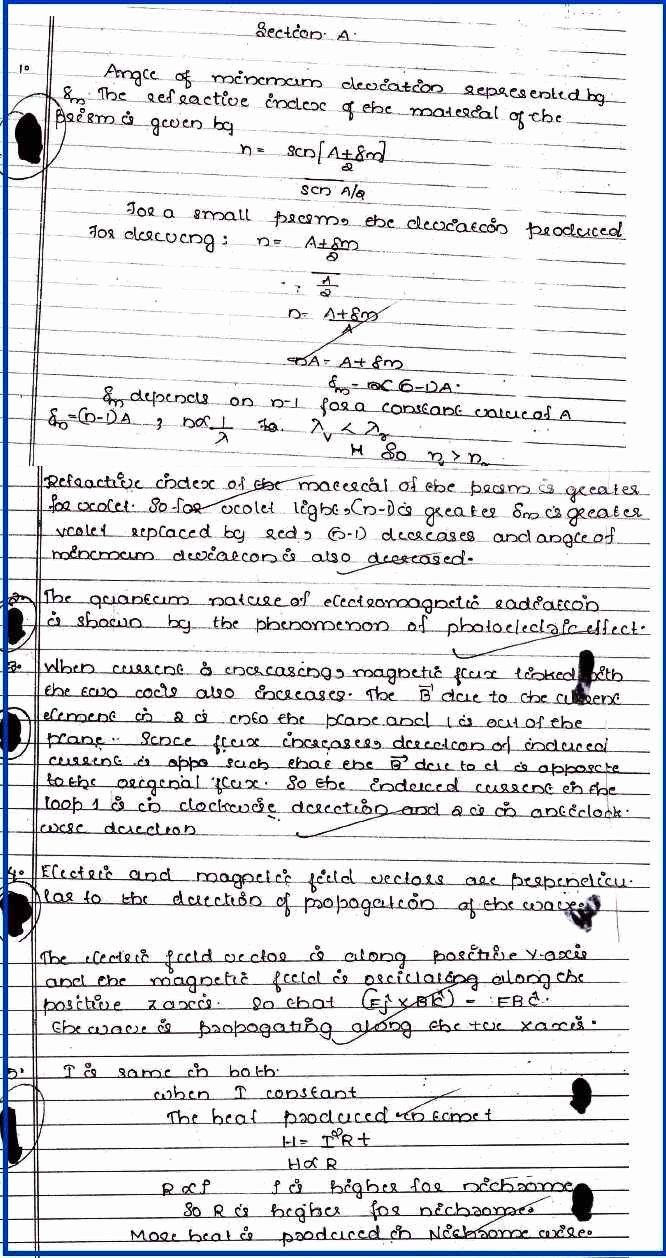 Section A.
1. Angle of minimum deviation represented by
δm. The refractive index of the material of the
prism is given by
n = sin[A+δm]
2
sin A/2
For a small prism, the deviation produced
For deriving: n = A+δm
2
A
2
n = A+δm
A
nA = A+δm
δm = (n-1)A.
δm depends on n-1 for a constant value of A
δm=(n-1)A, n∝1/λ λv < λr
So nv > nr
Refractive index of the material of the prism is greater
for violet. So for violet light, (n-1) is greater δm is greater
violet replaced by red, (n-1) decreases and angle of
minimum deviation is also decreased.
2. The quantum nature of electromagnetic radiation
is shown by the phenomenon of photoelectric effect.
3. When current is increasing, magnetic flux linked with
the two coils also increases. The B due to the current
element in 2 is into the plane and 1 is out of the
plane. Since flux increases, direction of induced
current is oppo such that the B due to it is opposite
to the original flux. So the induced current in the
loop 1 is in clockwise direction and 2 is in anticlock-
wise direction
4. Electric and magnetic field vectors are perpendicu-
lar to the direction of propagation of the wave.
The electric field vector is along positive Y-axis
and the magnetic field is oscillating along the
positive z axis. So that (Eĵ × Bk̂) = EBî.
The wave is propagating along the +ve x axis.
5. I is same in both.
when I constant
The heat produced in time t
H = I²Rt
H∝R
R∝ρ ρ is higher for nichrome
So R is higher for nichrome.
More heat is produced in Nichrome wire.